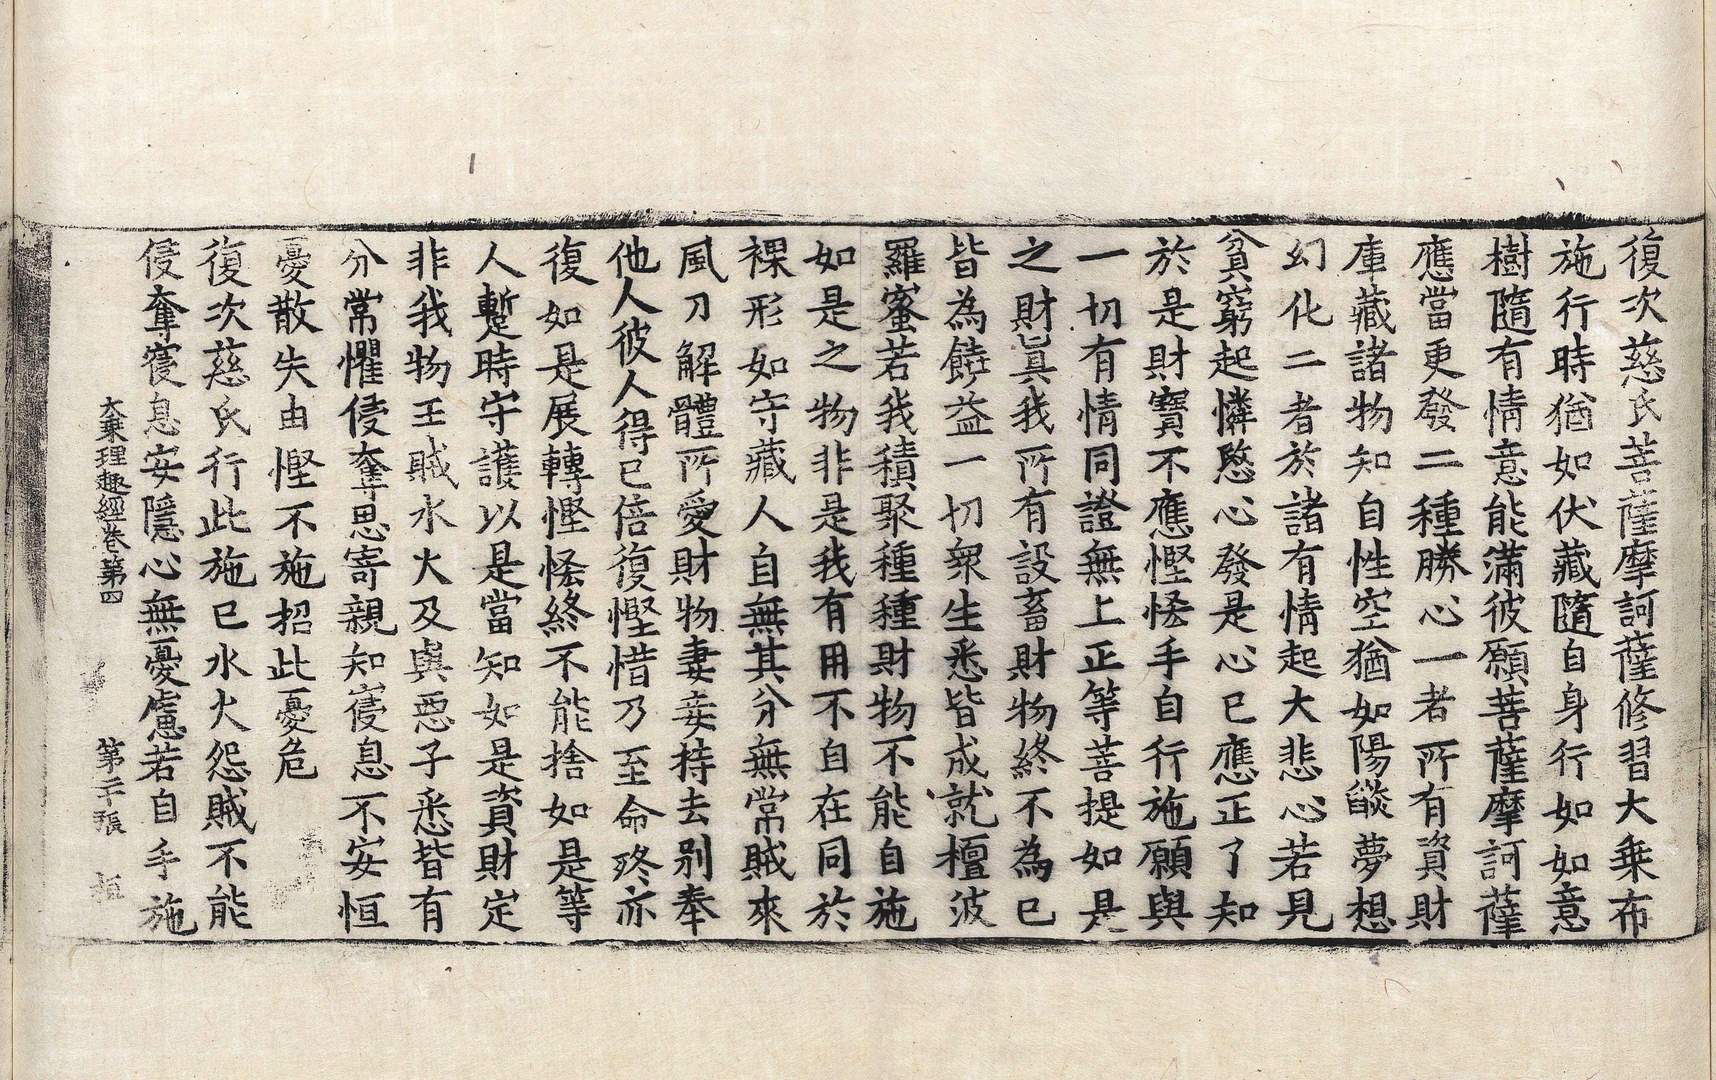 復次慈氏菩薩摩訶薩修習大乗布
施行時猶如伏藏隨自身行如如意
樹隨有情意能滿彼願菩薩摩訶薩
應當更發二種勝心一者所有資財
庫藏諸物知自性空猶如陽燄夢想
幻化二者於諸有情起大悲心若見
貧窮起憐愍心發是心已應正了知
於是財寶不應慳恡手自行施願與
一切有情同證無上正等菩提如是
之財眞我所有設畜財物終不為已
皆為饒益一切衆生悉皆成就檀波
羅蜜若我積聚種種財物不能自施
如是之物非是我有用不自在同於
裸形如守藏人自無其分無常賊來
風刀解體所愛財物妻妾持去別奉
他人彼人得已倍復慳惜乃至命終亦
復如是展轉慳恡終不能捨如是等
人蹔時守護以是當知如是資財定
非我物王賊水火及與惡子悉皆有
分常懼侵奪思寄親知寢息不安恒
憂散失由慳不施招此憂危
復次慈氏行此施已水火怨賊不能
侵奪寢息安隱心無憂慮若自手施
大乗理趣經卷第四 第二十張